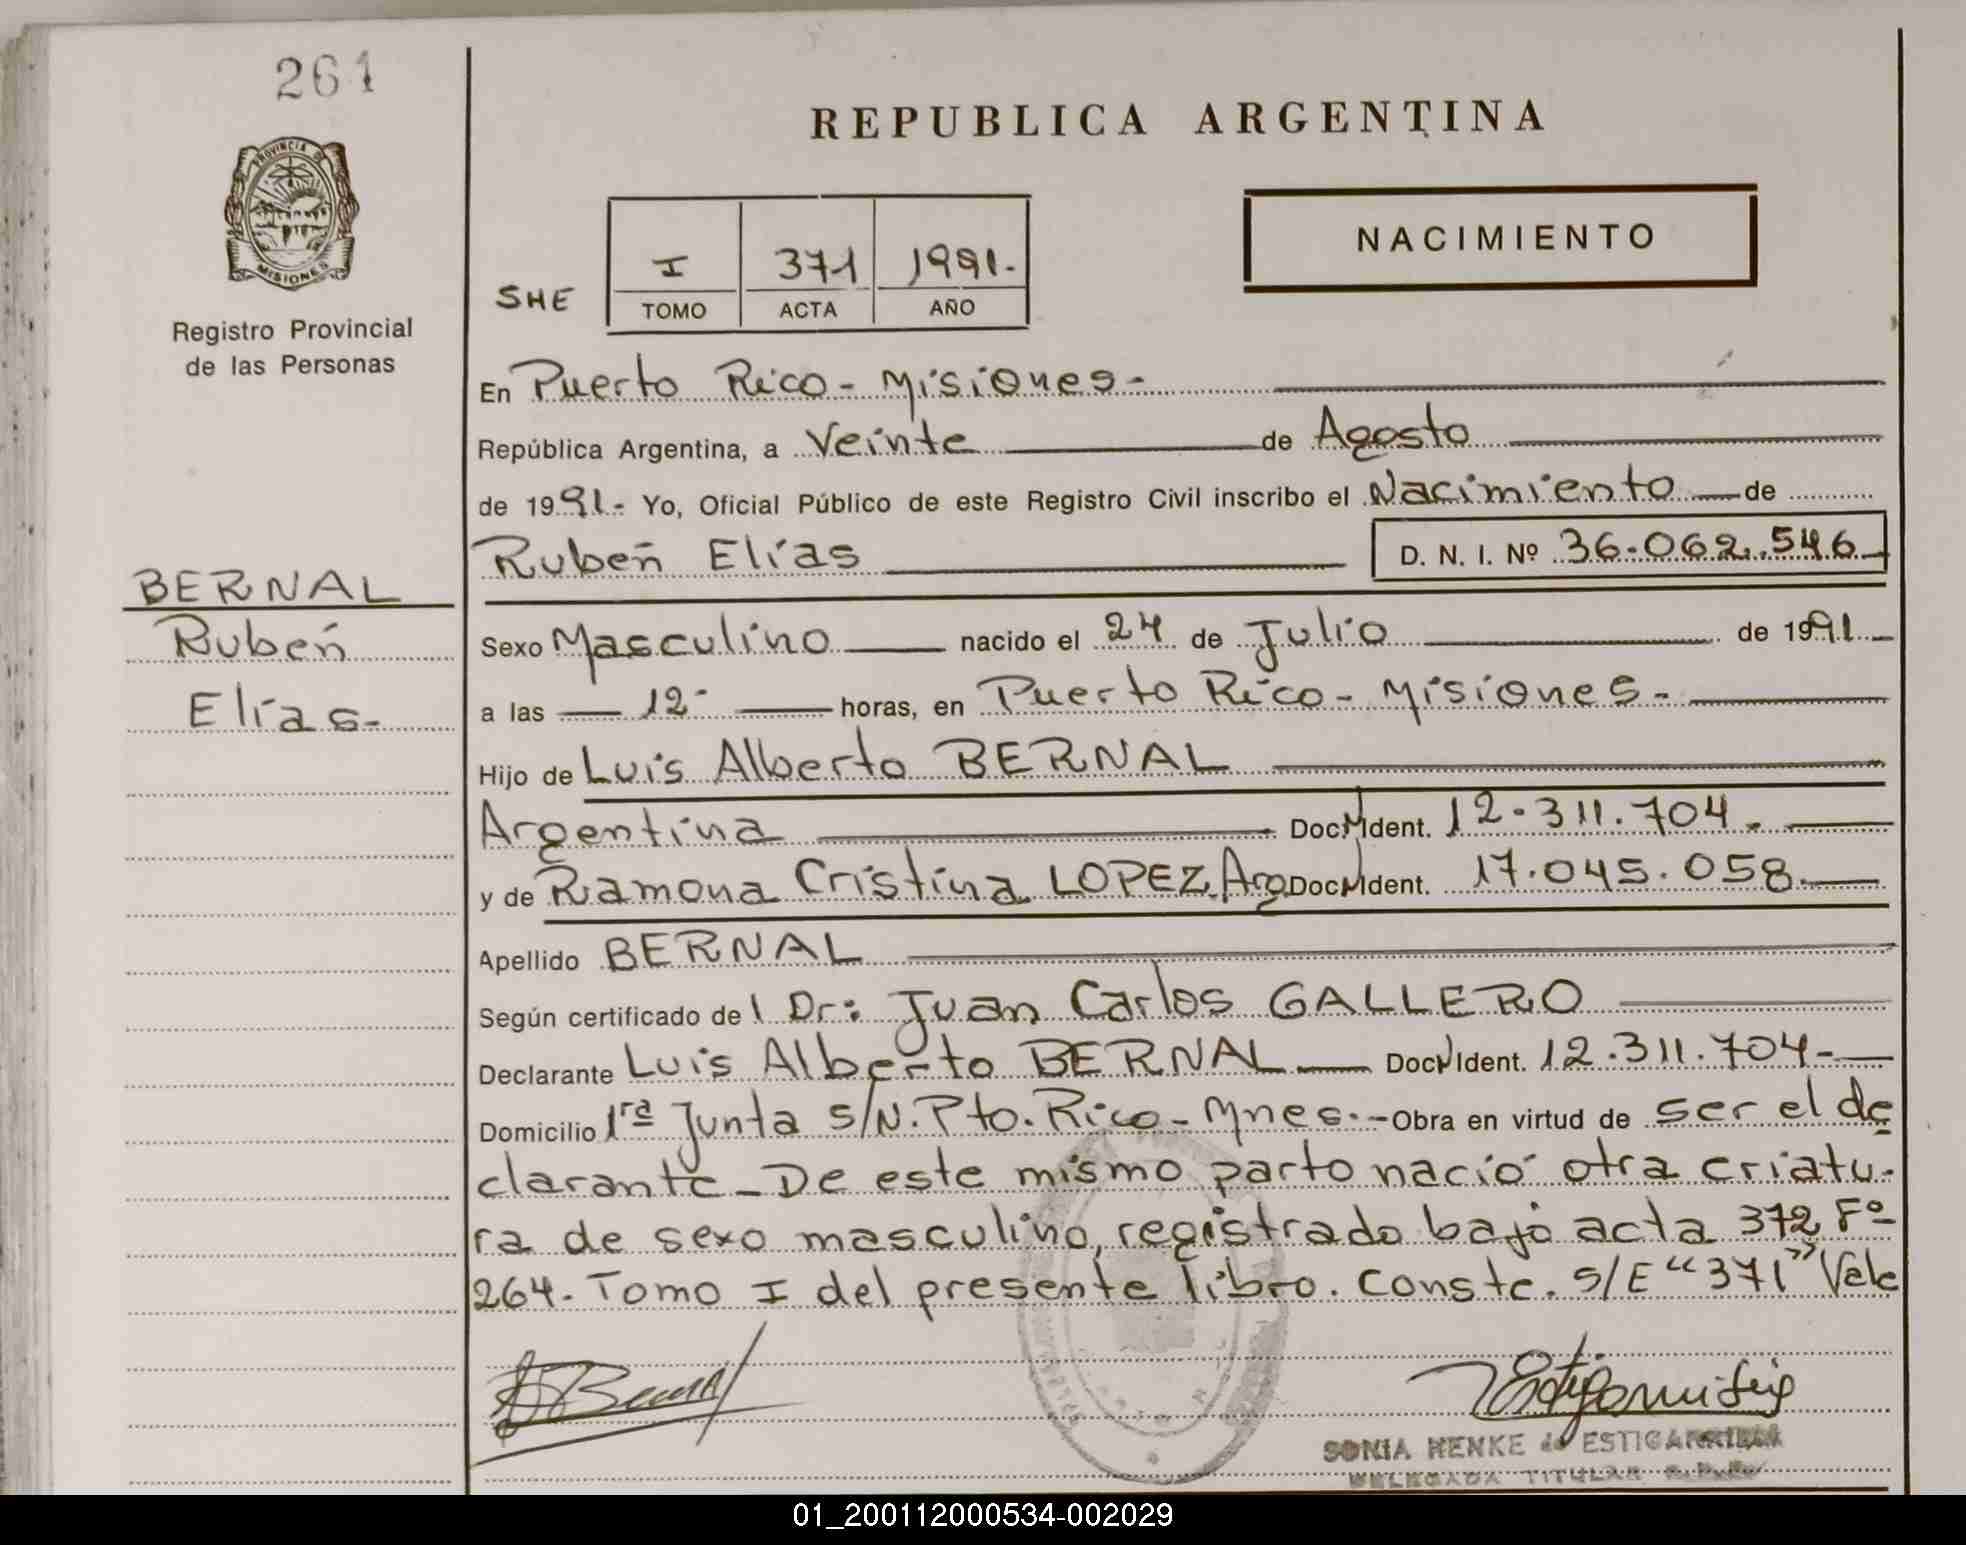 261
PROVINCIA DE
MISIONES
Registro Provincial
de las Personas
BERNAL
Rubén
Elías-
REPUBLICA ARGENTINA
NACIMIENTO
SHE
I 371 1991.-
TOMO ACTA AÑO
En Puerto Rico - Misiones -
República Argentina, a Veinte de Agosto
de 1991.- Yo, Oficial Público de este Registro Civil inscribo el Nacimiento de
Rubén Elías D. N. I. Nº 36.062.546
Sexo Masculino nacido el 24 de Julio de 1991.
a las 12- horas, en Puerto Rico - Misiones -
Hijo de Luis Alberto BERNAL
Argentina Doc. M Ident. 12.311.704.
y de Ramona Cristina LOPEZ. Arg. Doc. Ident. 17.045.058.
Apellido BERNAL
Según certificado del Dr: Juan Carlos GALLERO
Declarante Luis Alberto BERNAL Doc. Ident. 12.311.704-
Domicilio 1ra Junta S/N. Pto. Rico - Mnes.- Obra en virtud de ser el de
clarante - De este mismo parto nació otra criatu-
ra de sexo masculino, registrado bajo acta 372 Fº
264. Tomo I del presente libro. Conste. S/E "371" Vale
SONIA HENKE de ESTIGARRIBIA
DELEGADA TITULAR
01_200112000534-002029